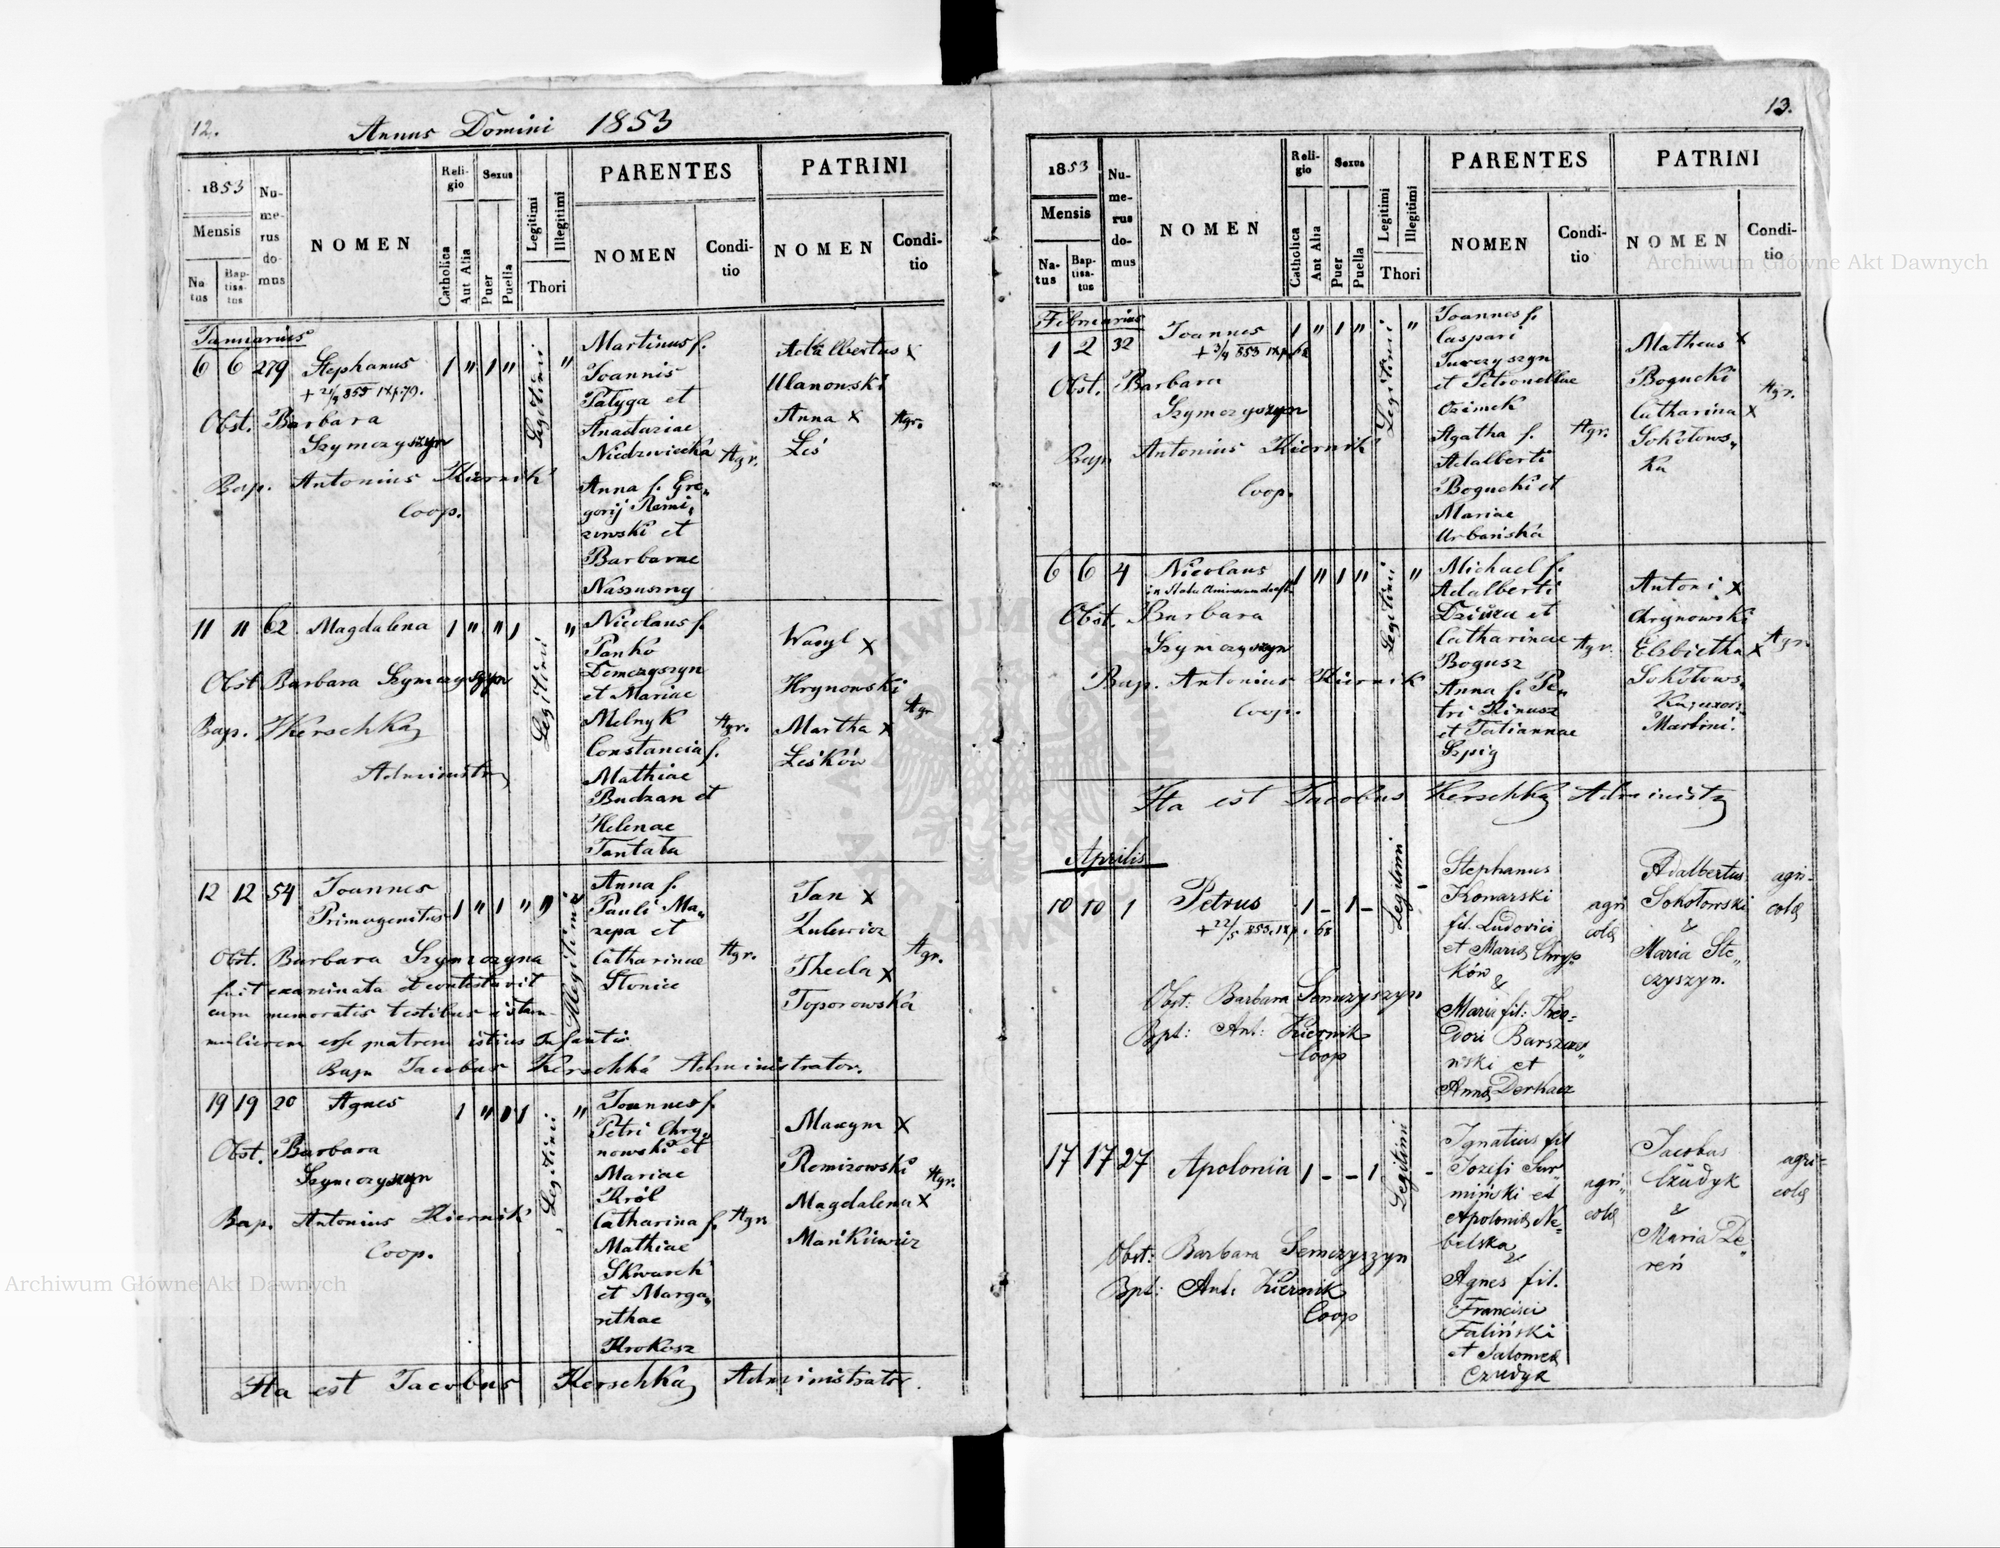 12.
Annus Domini 1853
1853
Mensis
Na-
tus
Bap-
tisa-
tus
Nu-
me-
rus
do-
mus
NOMEN
Reli-
gio
Catholica
Aut Alia
Sexus
Puer
Puella
Legitimi
Illegitimi
Thori
PARENTES
NOMEN
Condi-
tio
PATRINI
NOMEN
Condi-
tio
Januarius
6 6 279 Stephanus 1 " 1 " Legitimi "
Obst. Barbara
Szymczyszyn
Bap. Antonius Kiernik
Coop.
Martinus f.
Joannis
Patyga et
Anastaziae
Niedzwiecka Agr.
Anna f. Gre„
gorij Remi„
zowski et
Barbarae
Naszuszny
Adalbertus x
Ulanowski
Anna x Agr.
Leś
11 11 62 Magdalena 1 " " 1 Legitimi "
Obst. Barbara Szymczyszyn
Bap. JKerschka
Administr
Nicolaus f.
Panko
Demczyszyn
et Mariae
Melnyk Agr.
Constancia f.
Mathiae
Budzan et
Helenae
Tantala
Wasyl x
Hrynowski
Martha x Agr
Leśków
12 12 54 Joannes
Primogenitus 1 " 1 " " Illegitimi
Obst. Barbara Szymczyzna
fuit examinata et contestavit
cum memoratis testibus istam
mulierem esse matrem istius Infantis
Bap Jacobus Kerschka Administrator.
Anna f.
Pauli Ma„
zepa et
Catharinae Agr.
Slonice
Jan x
Zulewicz
Thecla x Agr.
Toporowska
19 19 20 Agnes 1 " " 1 Legitimi "
Obst. Barbara
Szymczyszyn
Bap. Antonius Kiernik
Coop.
Joannes f.
Petri Chry„
nowski et
Mariae
Król
Catharina f. Agr
Mathiae
Skwarek
et Marga„
rethae
Krokosz
Maxym x
Remizowski Agr.
Magdalena x
Mańkiewicz
Ita est Jacobus Kerschka Administrator.
13.
1853
Mensis
Na-
tus
Bap-
tisa-
tus
Nu-
me-
rus
do-
mus
NOMEN
Reli-
gio
Catholica
Aut Alia
Sexus
Puer
Puella
Legitimi
Illegitimi
Thori
PARENTES
NOMEN
Condi-
tio
PATRINI
NOMEN
Condi-
tio
Februarius
1 2 32 Joannes 1 " 1 " Legitimi "
Obst. Barbara
Szymczyszyn
Bap Antonius Kiernik
Coop.
Joannes f.
Caspari
Turczyszyn
et Petronellae
Ozimek
Agatha f. Agr.
Adalberti
Bogucki et
Mariae
Urbańska
Matheus x
Bogucki
Catharina x Agr.
Sokołows„
Ka
6 6 4 Nicolaus 1 " 1 " Legitimi "
Obst. Barbara
Szymczyszyn
Bap. Antonius Kiernik
Coop.
Michael f.
Adalberti
Dziura et
Catharinae Agr.
Bogusz
Anna f. Pe„
tri Kinasz
et Tatiannae
Szpig
Antoni x
Chrynowski
Elzbietha x Agr.
Sokołows„
Ka, uxor
Martini.
Ita est Jacobus Kerschka Administr
Aprilis
10 10 1 Petrus 1 - 1 - Legitimi -
Obst: Barbara Semczyszyn
Bpt: Ant: Kiernik
Coop
Stephanus
Konarski
fil. Ludovici
et Mariæ Chryp„
ków &
Maria fil: Theo-
dori Barszcze„
wski et
Annæ Derkacz
agri
colæ
Adalbertus
Sokołowski
&
Maria Ste„
czyszyn.
agri-
colæ
17 17 27 Apolonia 1 - - 1 Legitimi -
Obst: Barbara Semczyszyn
Bpt: Ant: Kiernik
Coop
Ignatius fil
Jozefi Sur„
miński et
Apoloniæ Ne-
belska
&
Agnes fil.
Francisci
Faliński
et Salomeæ
Czudyk
agri-
colæ
Jacobus
Czudyk
&
Maria De„
reń
agri-
colæ
Archiwum Główne Akt Dawnych
Archiwum Główne Akt Dawnych